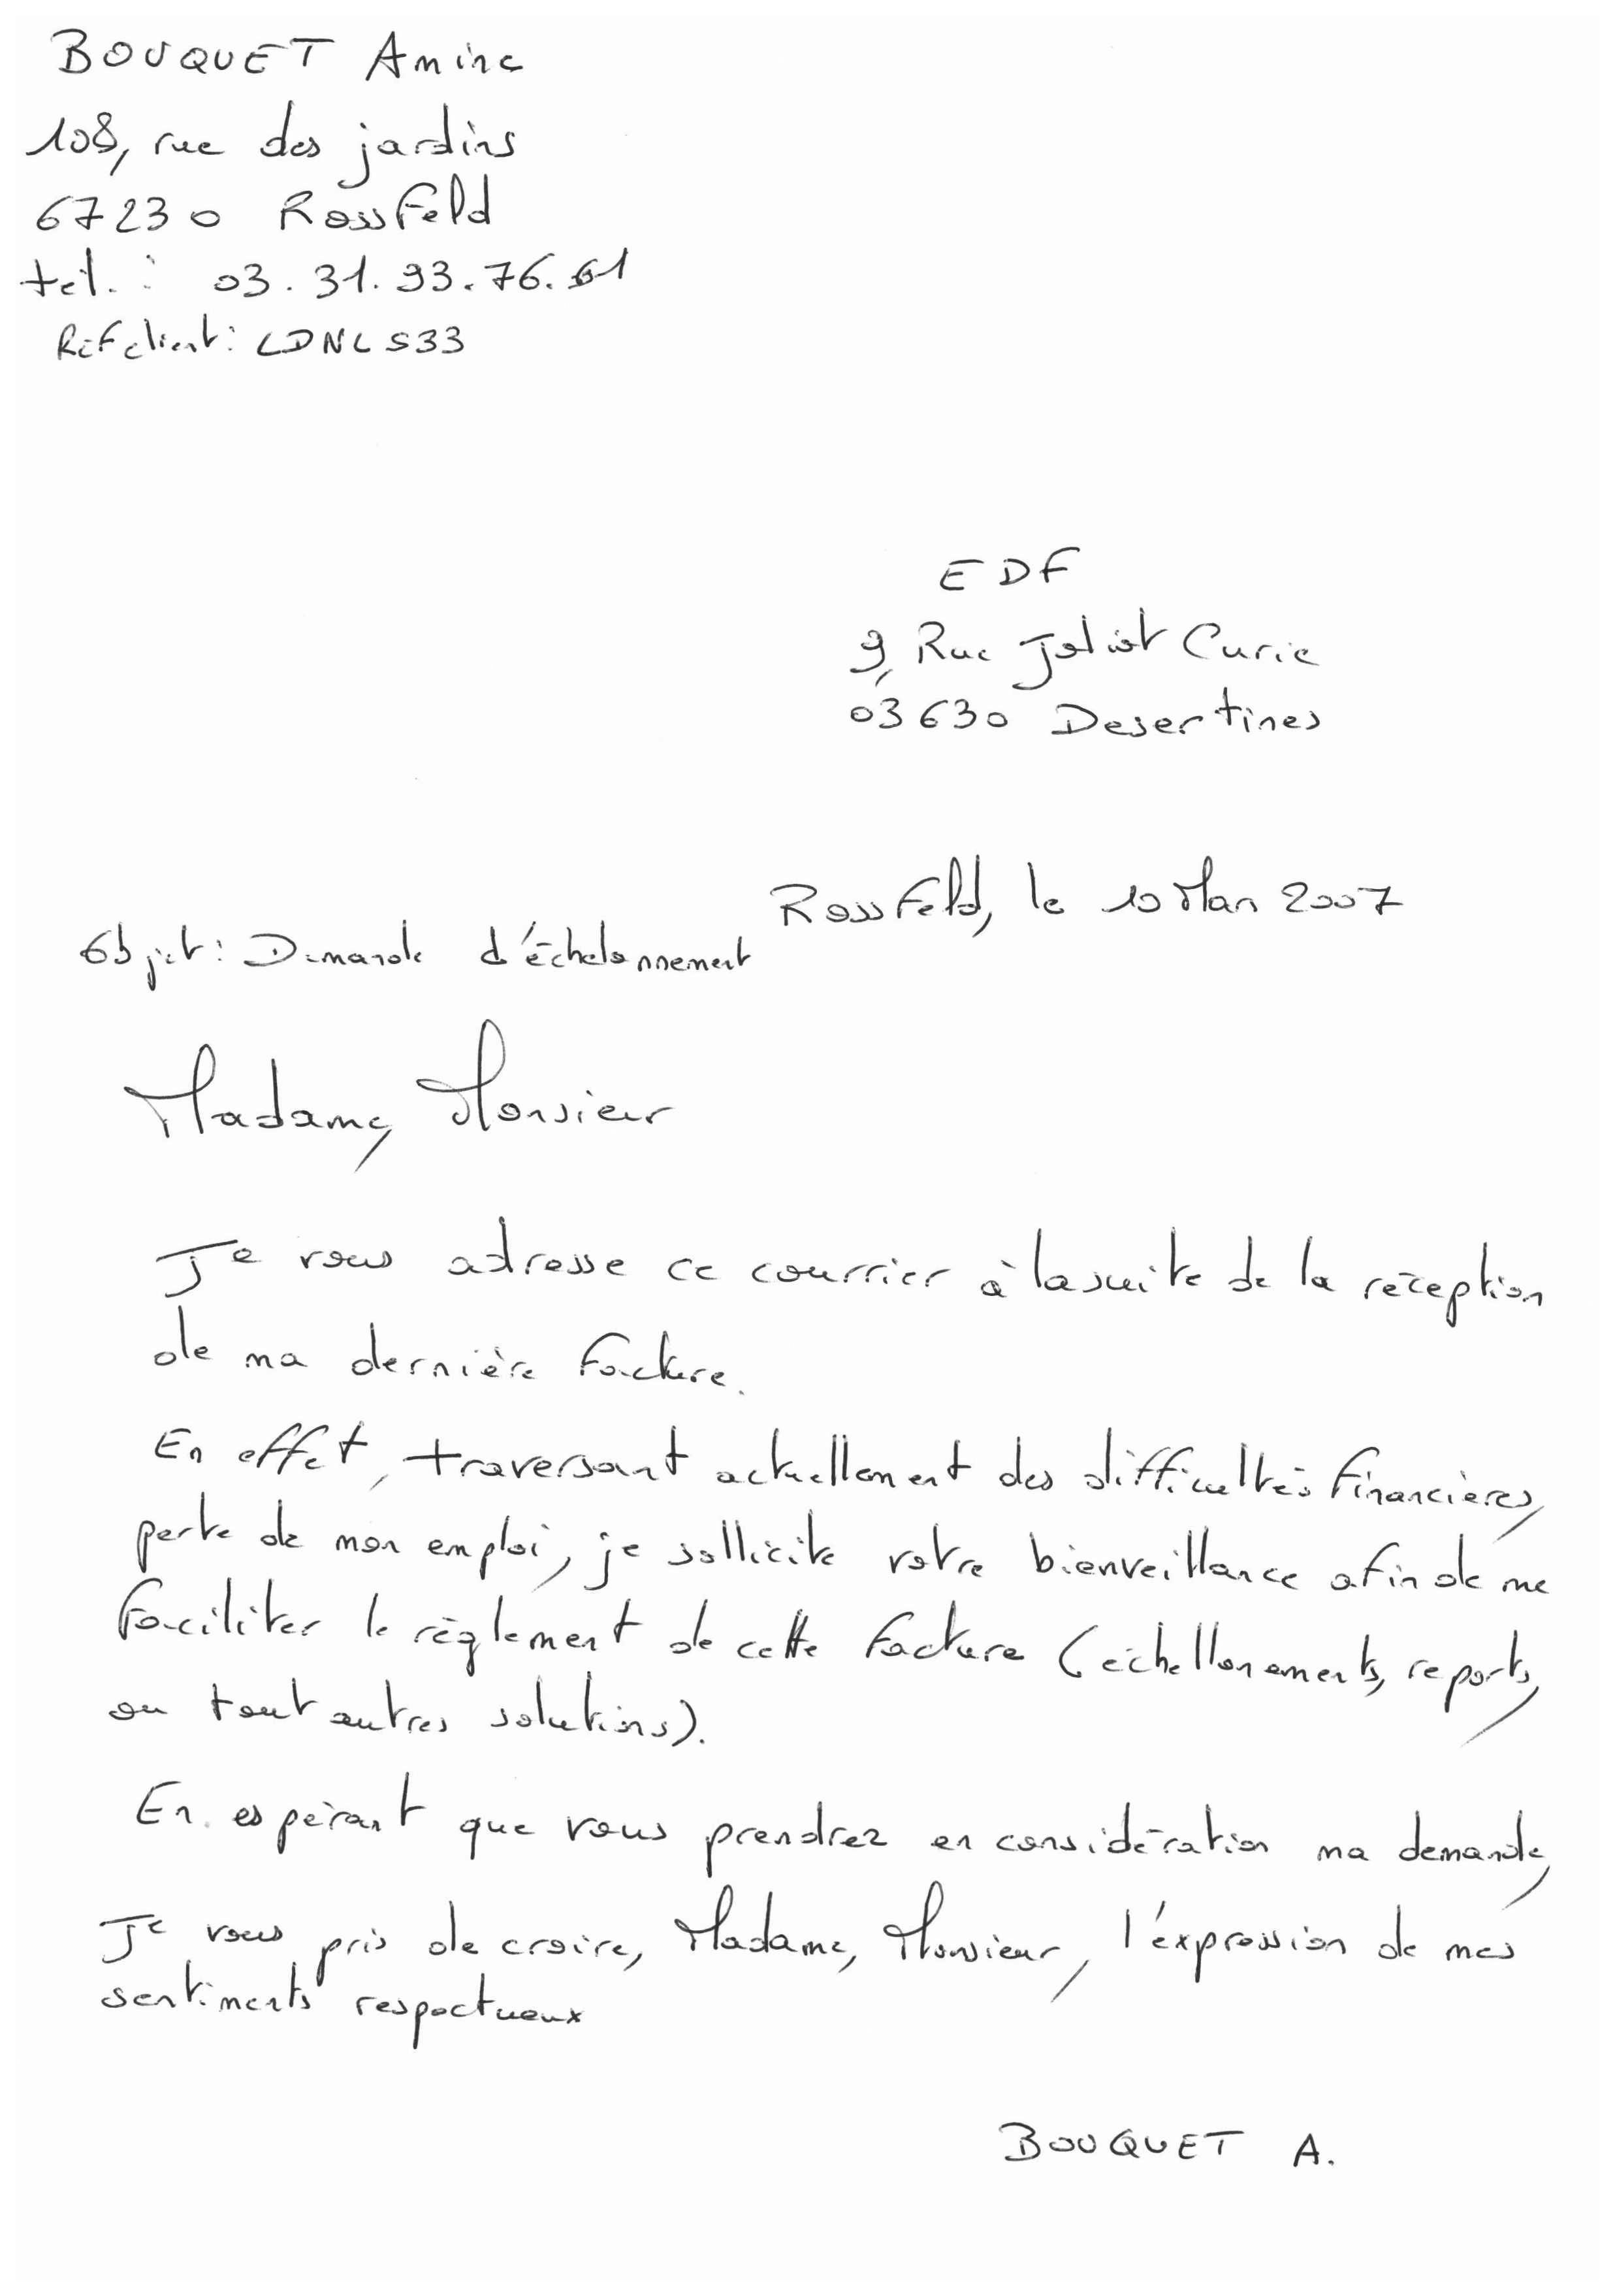 BOUQUET Amine
108, rue des jardins
67230 Rossfeld
tél. : 03.31.93.76.61
Réf client : LDNLS33
EDF
9, Rue Joliot Curie
03630 Desertines
Rossfeld, le 10 Mars 2007
Objet : Demande d'échelonnement
Madame, Monsieur
Je vous adresse ce courrier à la suite de la réception
de ma dernière facture.
En effet, traversant actuellement des difficultés financières,
perte de mon emploi, je sollicite votre bienveillance afin de me
faciliter le règlement de cette facture (échellonements, reports,
ou tout autres solutions).
En espérant que vous prendrez en considération ma demande,
Je vous pris de croire, Madame, Monsieur, l'expression de mes
sentiments respectueux
BOUQUET A.